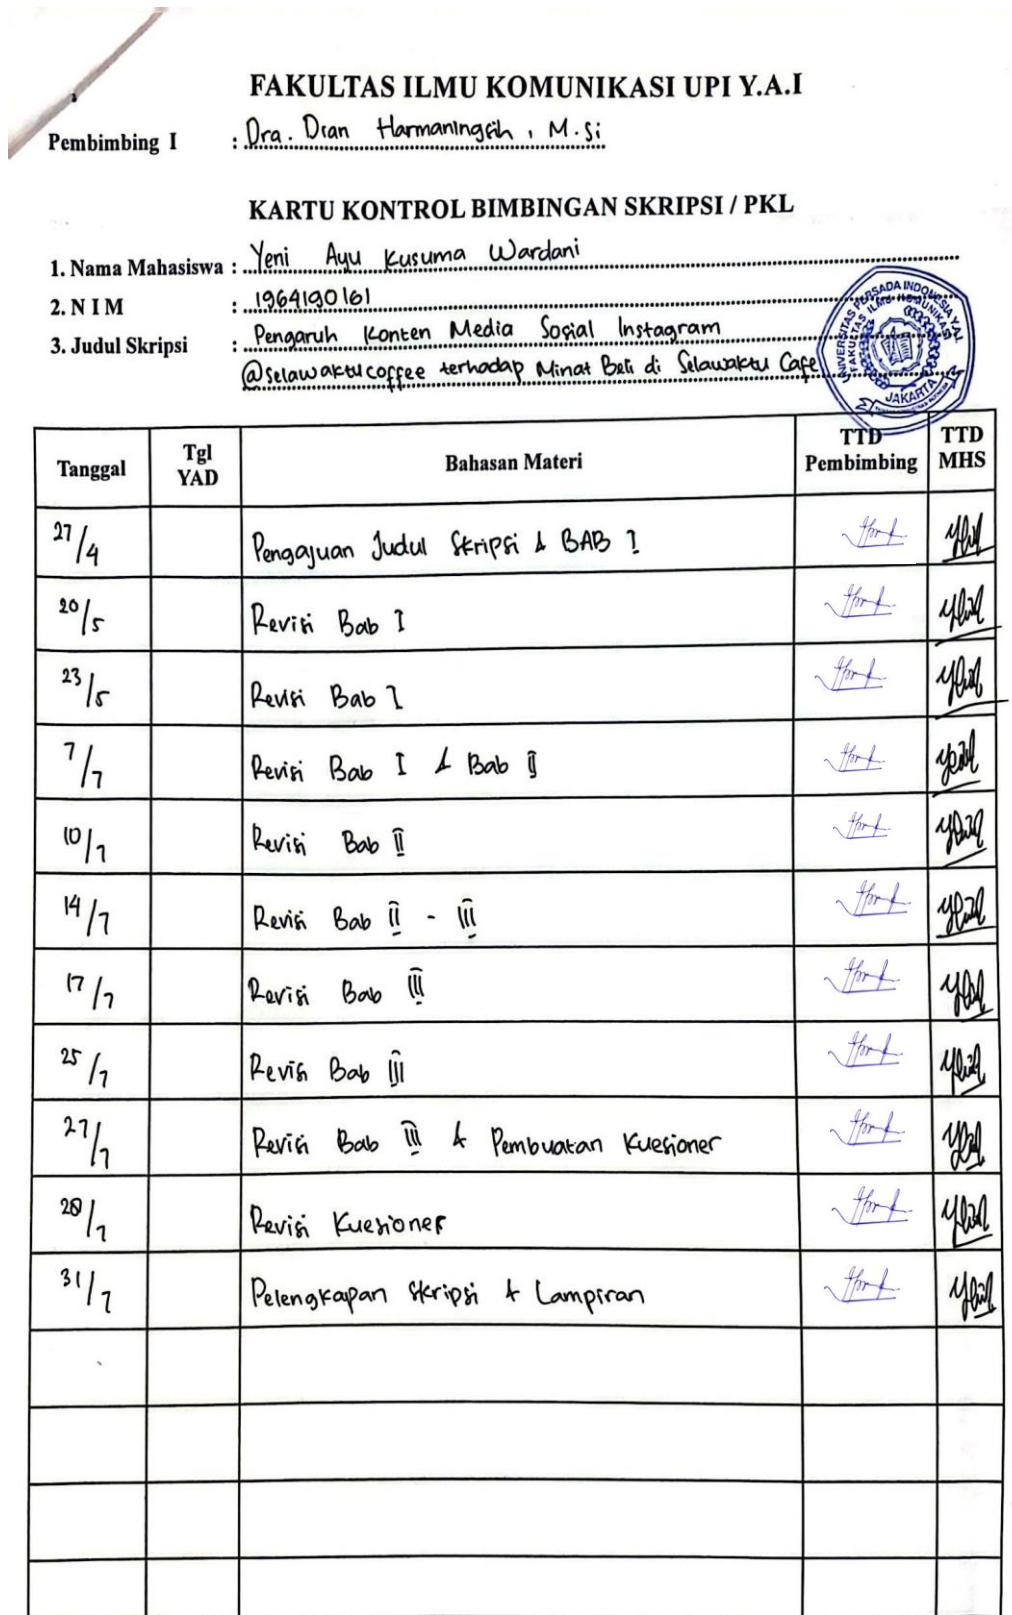 FAKULTAS ILMU KOMUNIKASI UPI Y.A.I
Pembimbing I : Dra. Dian Harmaningsih, M.Si
KARTU KONTROL BIMBINGAN SKRIPSI / PKL
1. Nama Mahasiswa : Yeni Ayu Kusuma Wardani
2. N I M : 1964190161
3. Judul Skripsi : Pengaruh Konten Media Sosial Instagram
@selawaktucoffee terhadap Minat Beli di Selawaktu Cafe
UNIVERSITAS PERSADA INDONESIA Y.A.I
FAKULTAS ILMU KOMUNIKASI
JAKARTA
Tanggal Tgl YAD Bahasan Materi TTD Pembimbing TTD MHS
27/4 Pengajuan Judul Skripsi & BAB I
20/5 Revisi Bab I
23/5 Revisi Bab I
7/7 Revisi Bab I & Bab II
10/7 Revisi Bab II
14/7 Revisi Bab II - III
17/7 Revisi Bab III
25/7 Revisi Bab III
27/7 Revisi Bab III & Pembuatan Kuesioner
28/7 Revisi Kuesioner
31/7 Pelengkapan Skripsi & Lampiran